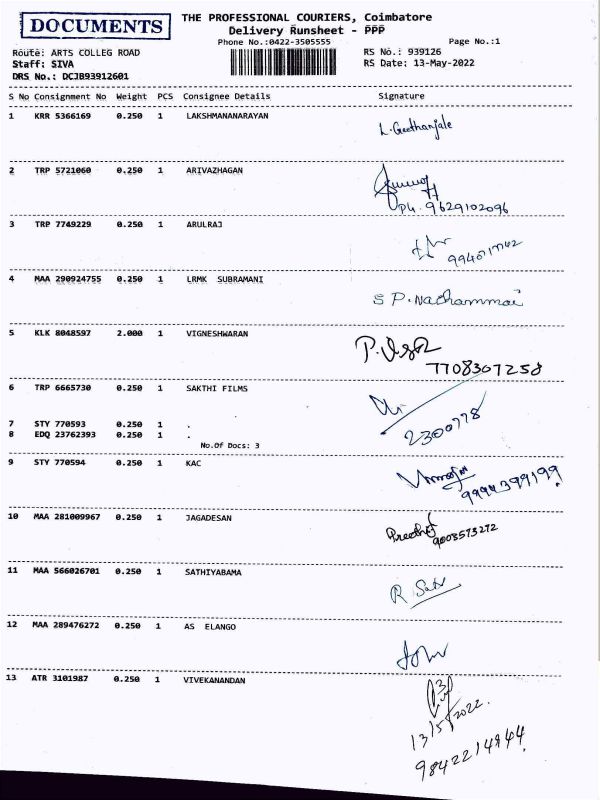 DOCUMENTS
THE PROFESSIONAL COURIERS, Coimbatore
Delivery Runsheet - PPP
Phone No.:0422-3505555
Page No.:1
Route: ARTS COLLEG ROAD
RS No.: 939126
Staff: SIVA
RS Date: 13-May-2022
DRS No.: DCJB93912601
S No Consignment No Weight PCS Consignee Details Signature
1 KRR 5366169 0.250 1 LAKSHMANANARAYAN
L. Geethanjale
2 TRP 5721060 0.250 1 ARIVAZHAGAN
Ph. 9629102096
3 TRP 7749229 0.250 1 ARULRAJ
4 MAA 290924755 0.250 1 LRMK SUBRAMANI
S P. Nachammai
5 KLK 8048597 2.000 1 VIGNESHWARAN
7708307258
6 TRP 6665730 0.250 1 SAKTHI FILMS
2300778
7 STY 770593 0.250 1 .
8 EDQ 23762393 0.250 1 .
No.Of Docs: 3
9 STY 770594 0.250 1 KAC
9994399199
10 MAA 281009967 0.250 1 JAGADESAN
9008573272
11 MAA 566026701 0.250 1 SATHIYABAMA
12 MAA 289476272 0.250 1 AS ELANGO
13 ATR 3101987 0.250 1 VIVEKANANDAN
13/5/2022.
9842214844